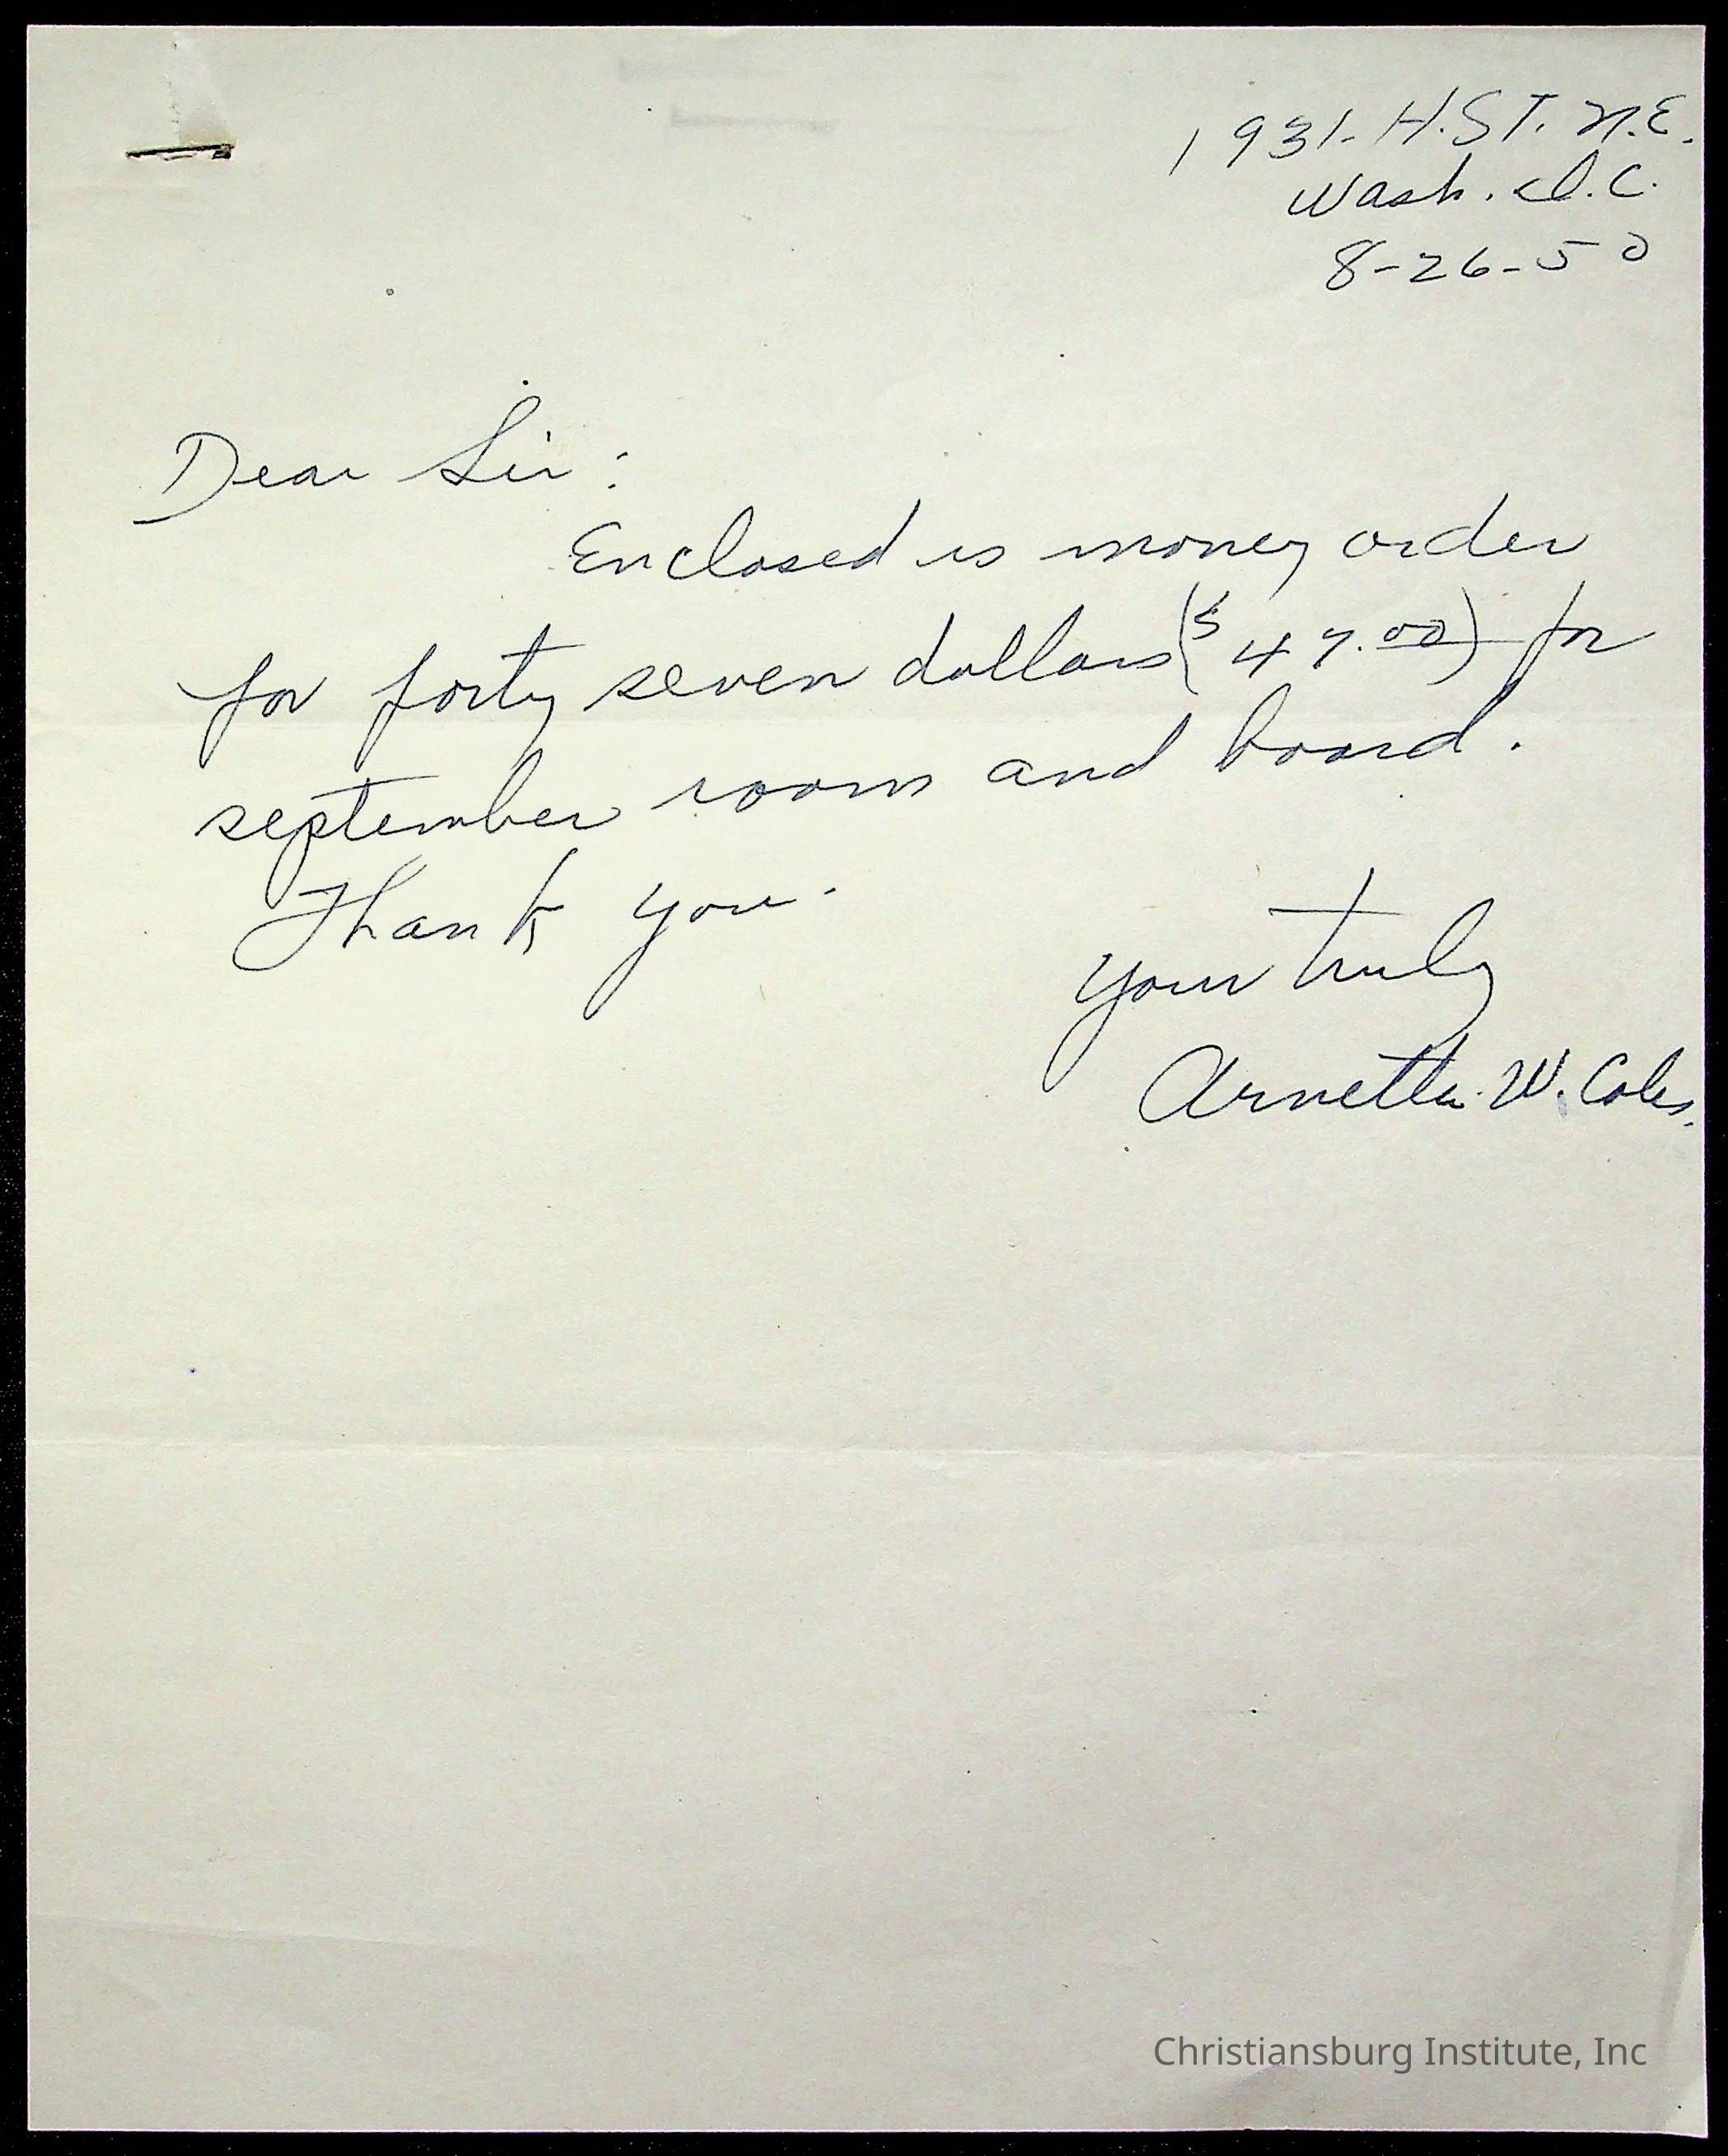 1931. H. ST. N.E.
Wash. D.C.
8-26-50
Dear Sir:
Enclosed is money order
for forty seven dollars ($47.00) for
september room and board.
Thank you.
your truly
Arnetta W. Coles.
Christiansburg Institute, Inc